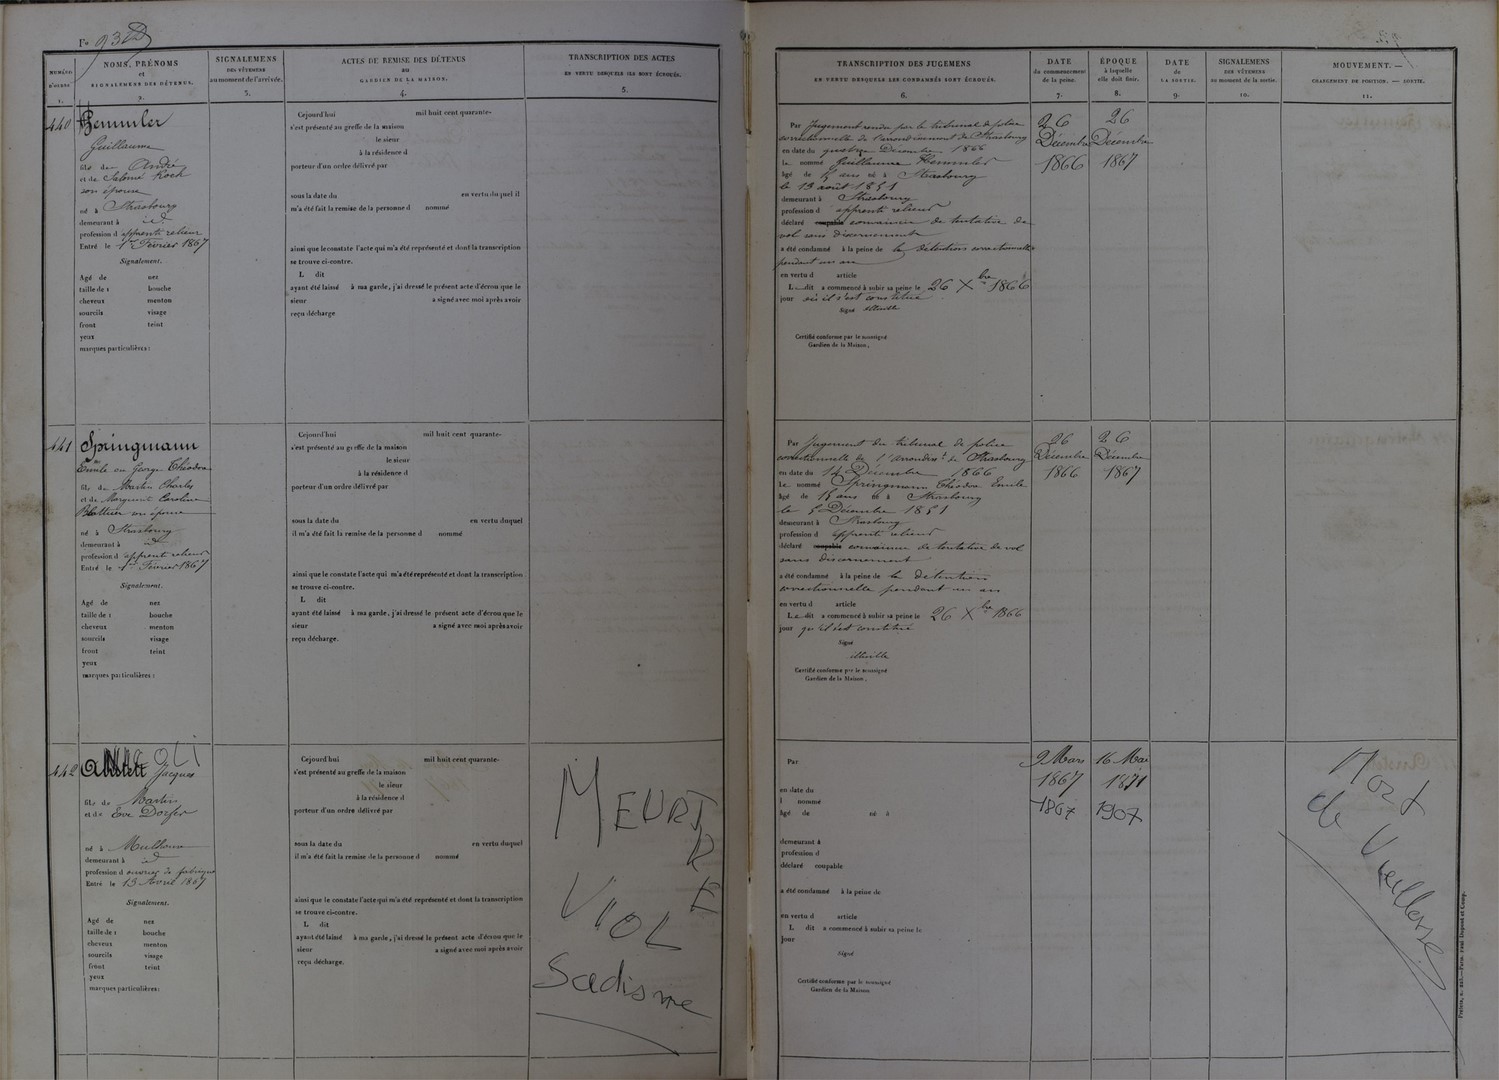 Fo 93
NUMÉRO D'ORDRE
1.
NOMS, PRÉNOMS
et
SIGNALEMENS DES DÉTENUS.
2.
SIGNALEMENS
DES VÊTEMENS
au moment de l'arrivée.
3.
ACTES DE REMISE DES DÉTENUS
au
GARDIEN DE LA MAISON.
4.
TRANSCRIPTION DES ACTES
EN VERTU DESQUELS ILS SONT ÉCROUÉS.
5.
440
Hemmler
Guillaume
fils de André
et de Salomé Koch
son épouse
né à Strasbourg
demeurant à id
profession d apprenti relieur
Entré le 1er Février 1867
Signalement.
Agé de nez
taille de 1 bouche
cheveux menton
sourcils visage
front teint
yeux
marques particulières :
Cejourd'hui mil huit cent quarante-
s'est présenté au greffe de la maison
le sieur
à la résidence d
porteur d'un ordre délivré par
sous la date du en vertu duquel il
m'a été fait la remise de la personne d nommé
ainsi que le constate l'acte qui m'a été représenté et dont la transcription
se trouve ci-contre.
L dit
ayant été laissé à ma garde, j'ai dressé le présent acte d'écrou que le
sieur a signé avec moi après avoir
reçu décharge
441
Springmann
Emile ou George Théodore
fils de Martin Charles
et de Marguerite Caroline
Blattner son épouse
né à Strasbourg
demeurant à id
profession d apprenti relieur
Entré le 1er Février 1867
Signalement.
Agé de nez
taille de 1 bouche
cheveux menton
sourcils visage
front teint
yeux
marques particulières :
Cejourd'hui mil huit cent quarante-
s'est présenté au greffe de la maison
le sieur
à la résidence d
porteur d'un ordre délivré par
sous la date du en vertu duquel
il m'a été fait la remise de la personne d nommé
ainsi que le constate l'acte qui m'a été représenté et dont la transcription
se trouve ci-contre.
L dit
ayant été laissé à ma garde, j'ai dressé le présent acte d'écrou que le
sieur a signé avec moi après avoir
reçu décharge.
442
Jacques
fils de Martin
et de Eve Dorfer
né à Mulhouse
demeurant à id
profession d ouvrier de fabrique
Entré le 13 Avril 1867
Signalement.
Agé de nez
taille de 1 bouche
cheveux menton
sourcils visage
front teint
yeux
marques particulières :
Cejourd'hui mil huit cent quarante-
s'est présenté au greffe de la maison
le sieur
à la résidence d
porteur d'un ordre délivré par
sous la date du en vertu duquel
il m'a été fait la remise de la personne d nommé
ainsi que le constate l'acte qui m'a été représenté et dont la transcription
se trouve ci-contre.
L dit
ayant été laissé à ma garde, j'ai dressé le présent acte d'écrou que le
sieur a signé avec moi après avoir
reçu décharge.
MEURTRE
VIOL
Sadisme
TRANSCRIPTION DES JUGEMENS
EN VERTU DESQUELS LES CONDAMNÉS SONT ÉCROUÉS.
6.
DATE
du commencement
de la peine.
7.
ÉPOQUE
à laquelle
elle doit finir.
8.
DATE
de
LA SORTIE.
9.
SIGNALEMENS
DES VÊTEMENS
au moment de la sortie.
10.
MOUVEMENT. —
CHANGEMENT DE POSITION. — SORTIE.
11.
Par Jugement rendu par le tribunal de police
correctionnelle de l'arrondissement de Strasbourg
en date du quatorze Décembre 1866
le nommé Guillaume Hemmler
âgé de 15 ans né à Strasbourg
le 13 août 1851
demeurant à Strasbourg
profession d apprenti relieur
déclaré coupable convaincu de tentative de
vol sans discernement
a été condamné à la peine de la détention correctionnelle
pendant un an
en vertu d article
Le dit a commencé à subir sa peine le 26 Xbre 1866
jour où il s'est constitué.
Signé
Certifié conforme par le soussigné
Gardien de la Maison.
26
Décembre
1866
26
Décembre
1867
Par Jugement du tribunal de police
correctionnelle de l'arrondist de Strasbourg
en date du 14 Décembre 1866
le nommé Springmann Théodore Emile
âgé de 15 ans né à Strasbourg
le 5 Décembre 1851
demeurant à Strasbourg
profession d apprenti relieur
déclaré coupable convaincu de tentative de vol
sans discernement
a été condamné à la peine de la détention
correctionnelle pendant un an
en vertu d article
Le dit a commencé à subir sa peine le 26 Xbre 1866
jour qu'il s'est constitué
Signé
Certifié conforme par le soussigné
Gardien de la Maison.
26
Décembre
1866
26
Décembre
1867
Par
en date du
l nommé
âgé de né à
demeurant à
profession d
déclaré coupable
a été condamné à la peine de
en vertu d article
L dit a commencé à subir sa peine le
jour
Signé
Certifié conforme par le soussigné
Gardien de la Maison
9 Mars
1867
1867
16 Mai
1871
1907
Mort
de Vieillesse